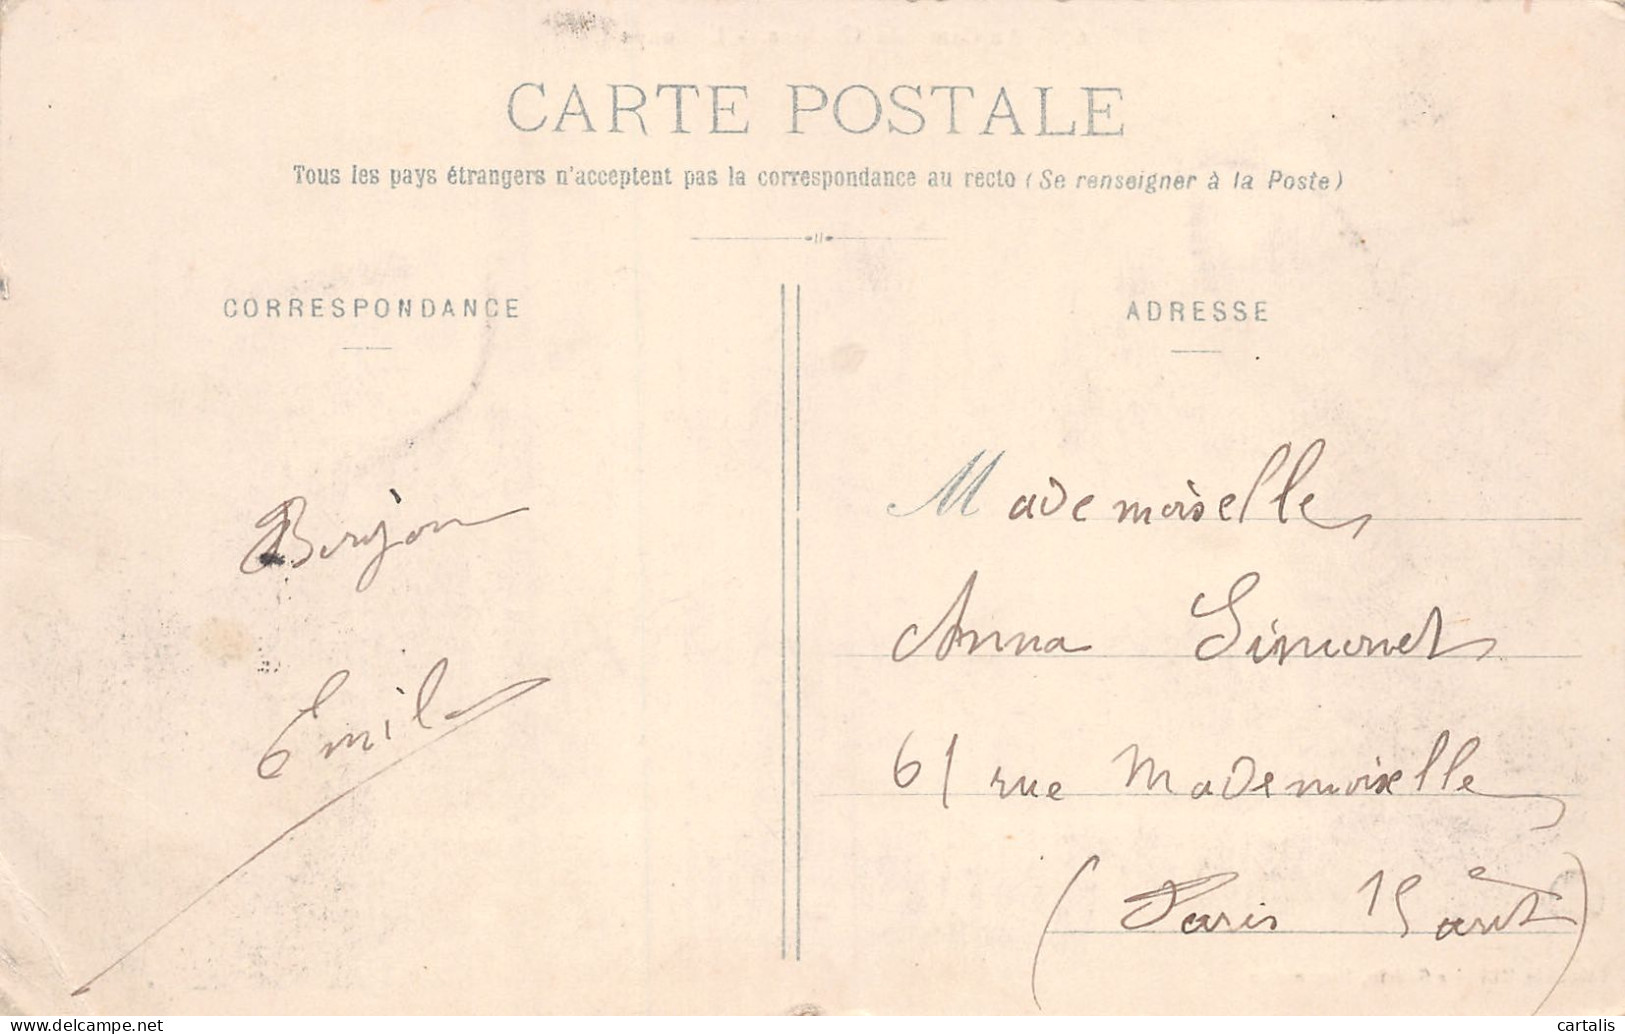 CARTE POSTALE
Tous les pays étrangers n'acceptent pas la correspondance au recto (Se renseigner à la Poste)
CORRESPONDANCE
ADRESSE
Mademoiselle
Anna Simonet
61 rue Mademoiselle
(Paris 15 arrt)
Berjon
Emile
delcampe.net
cartalis